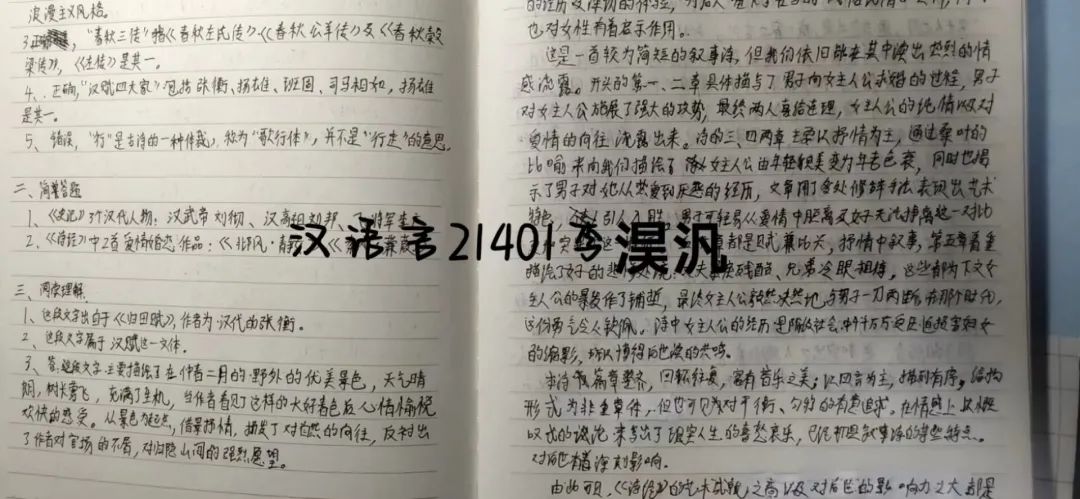 浪漫主义风格。
3、正确，“春秋三传”指《春秋左氏传》《春秋公羊传》及《春秋穀
梁传》，《左传》是其一。
4、正确，“汉赋四大家”包括张衡、扬雄、班固、司马相如，扬雄
是其一。
5、错误，“行”是古诗的一种体裁，称为“歌行体”，并不是“行走”的意思。
二、简答题
1、《史记》3个汉代人物：汉武帝刘彻、汉高祖刘邦、
2、《诗经》中2首爱情婚恋作品：《邶风·静
三、阅读理解
1、这段文字出自于《归田赋》，作者为汉代的张衡。
2、这段文字属于汉赋这一文体。
3、答：这段文字主要描绘了在仲春二月的野外的优美景色，天气晴
朗，树木 充满了生机，当作者看见了这样的大好春色后心情愉悦
欢快的感受。从景色为起点，借景抒情，抒发了对自然的向往，反衬出
了作者对官场的不屑，对归隐山间的强烈愿望。
汉语言21401李淏汎
的经历及深切的体验，
也对女性有着启示作用。
这是一首较为简短的叙事诗，但我们依旧能在其中读出热烈的情
感流露。开头的第一、二章具体描写了男子向女主人公求婚的过程，男子
对女主人公施展了强大的攻势，最终两人喜结连理，女主人公的纯情以及对
爱情的向往流露出来。诗的三、四两章主要以抒情为主，通过桑叶的
比喻来向我们描绘了 女主人公由年轻貌美变为年老色衰，同时也揭
示了男子对她从热爱到厌恶的经历，文章用了多处修辞手法表现出艺术
特色， 引人入胜，男子可轻易从爱情中脱离又女子无法挣离这一对比
都是赋兼比兴，抒情中叙事，第五章着重
描绘了女子的悲 丈夫 残酷、兄弟冷眼相待，这些都为下文女
主人公的 作了铺垫，最后女主人公毅然决然地与男子一刀两断，在那个时代，
这份勇气令人钦佩。诗中女主人公的经历是 社会中千千万万受压迫损害妇女
的缩影，所以博得后世读的共鸣。
本诗 篇章整齐，回环往复，富有音乐之美；以四言为主，描写有序，结构
形式为非重章体，但也可见对平衡、匀称的有意追求。在情感上以
叹式的 来写出了坎坷人生的喜怒哀乐，已 叙事诗的某些特点。
对后世有着深刻影响。
由此可见，《诗经》的艺术成就之高以及对后世的影响力之大都是